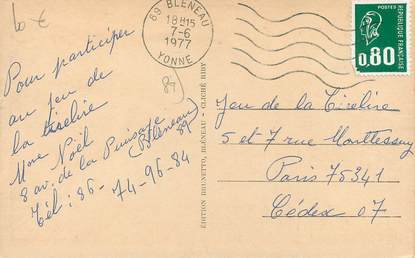 10 €
89 BLENEAU
18H15
7-6
1977
YONNE
POSTES
0,80
REPUBLIQUE FRANÇAISE
89
Pour participer
au jeu de
la tirelire
Mme Noël
8 av. de la Puisaye
(Bléneau)
89
Tél : 86-74-96-84
ÉDITION BRUNETTO, BLÉNEAU - CLICHÉ RIBY
Jeu de la Tirelire
5 et 7 rue Monttessuy
Paris 75341
Cédex 07